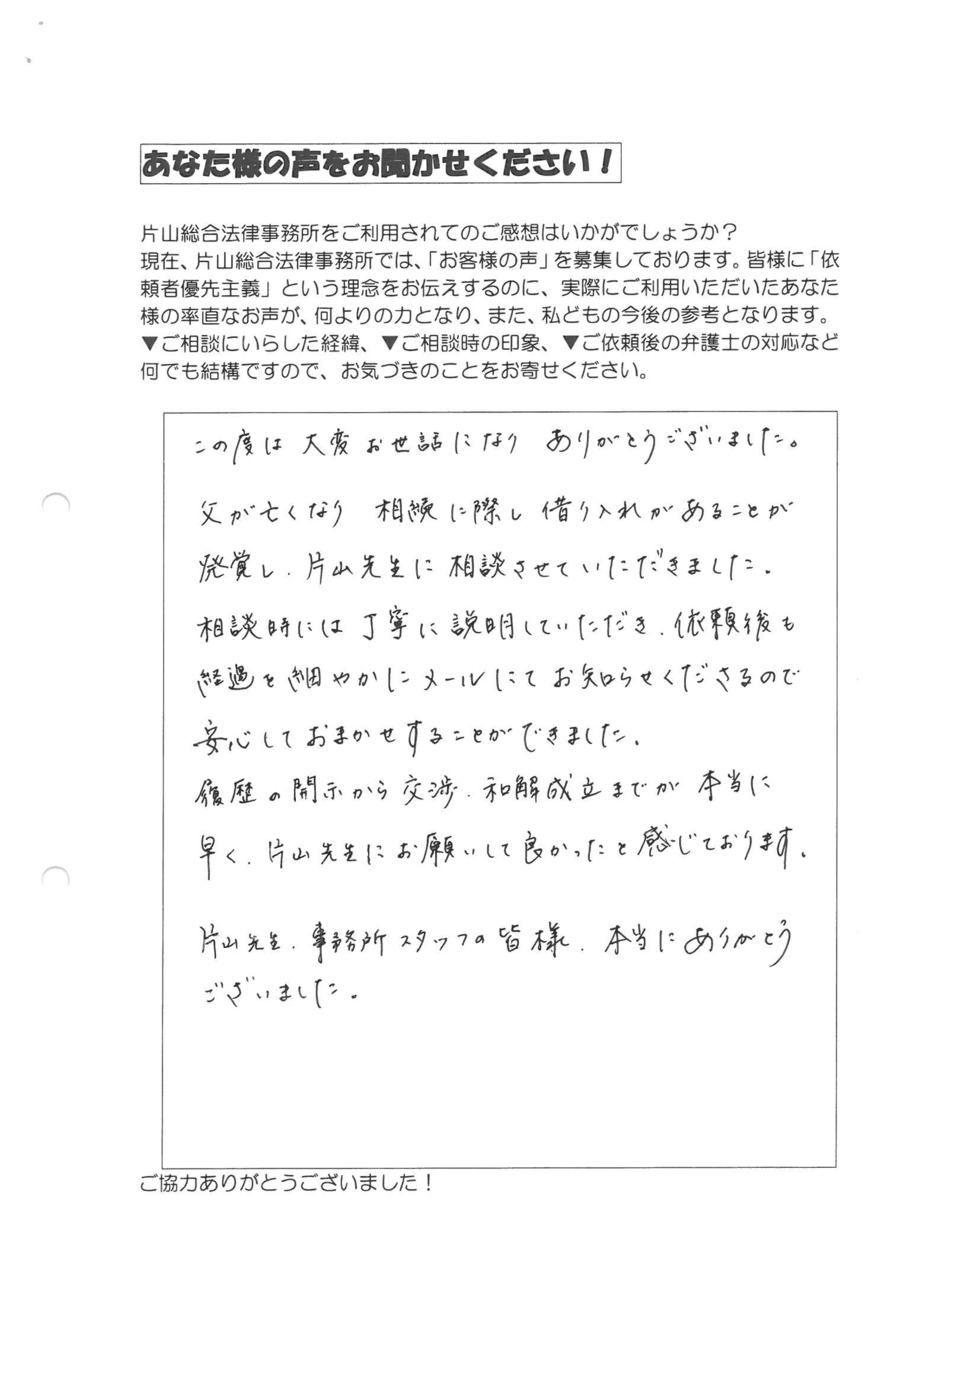 あなた様の声をお聞かせください！
片山総合法律事務所をご利用されてのご感想はいかがでしょうか？
現在、片山総合法律事務所では、「お客様の声」を募集しております。皆様に「依
頼者優先主義」という理念をお伝えするのに、実際にご利用いただいたあなた
様の率直なお声が、何よりの力となり、また、私どもの今後の参考となります。
▼ご相談にいらした経緯、▼ご相談時の印象、▼ご依頼後の弁護士の対応など
何でも結構ですので、お気づきのことをお寄せください。
この度は 大変お世話になり ありがとうございました。
父が亡くなり 相続に際し 借り入れがあることが
発覚し、片山先生に 相談させていただきました。
相談時には 丁寧に 説明していただき、依頼後も
経過を細やかにメールにて お知らせくださるので
安心して おまかせすることができました。
履歴の開示から 交渉、和解成立までが 本当に
早く、片山先生にお願いして良かったと感じております。
片山先生、事務所スタッフの皆様、本当にありがとう
ございました。
ご協力ありがとうございました！